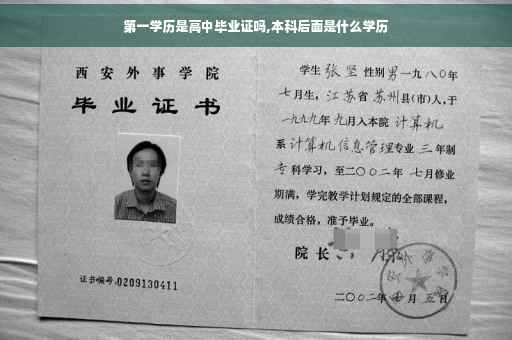 第一学历是高中毕业证吗,本科后面是什么学历
西安外事学院
毕业证书
证书编号:0209130411
学生 张坚 性别 男 一九八〇年
七月生, 江苏省 苏州县(市)人,于
一九九九年九月入本院 计算机
系 计算机信息管理专业 三年制
专科学习,至二〇〇二年 七月修业
期满,学完教学计划规定的全部课程,
成绩合格,准予毕业。
院长
二〇〇二年 七月 五日